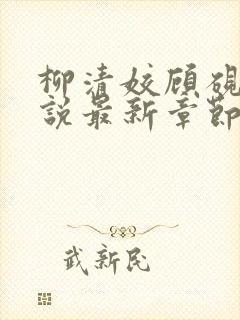 柳清姣顾砚
说最新章节
武新民